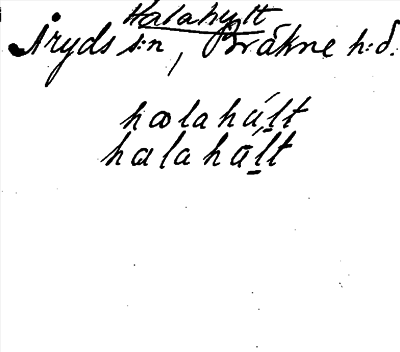 Halahult
Åryds s:n, Bräkne h:d.
hœlahúl̠t
halahúl̠t